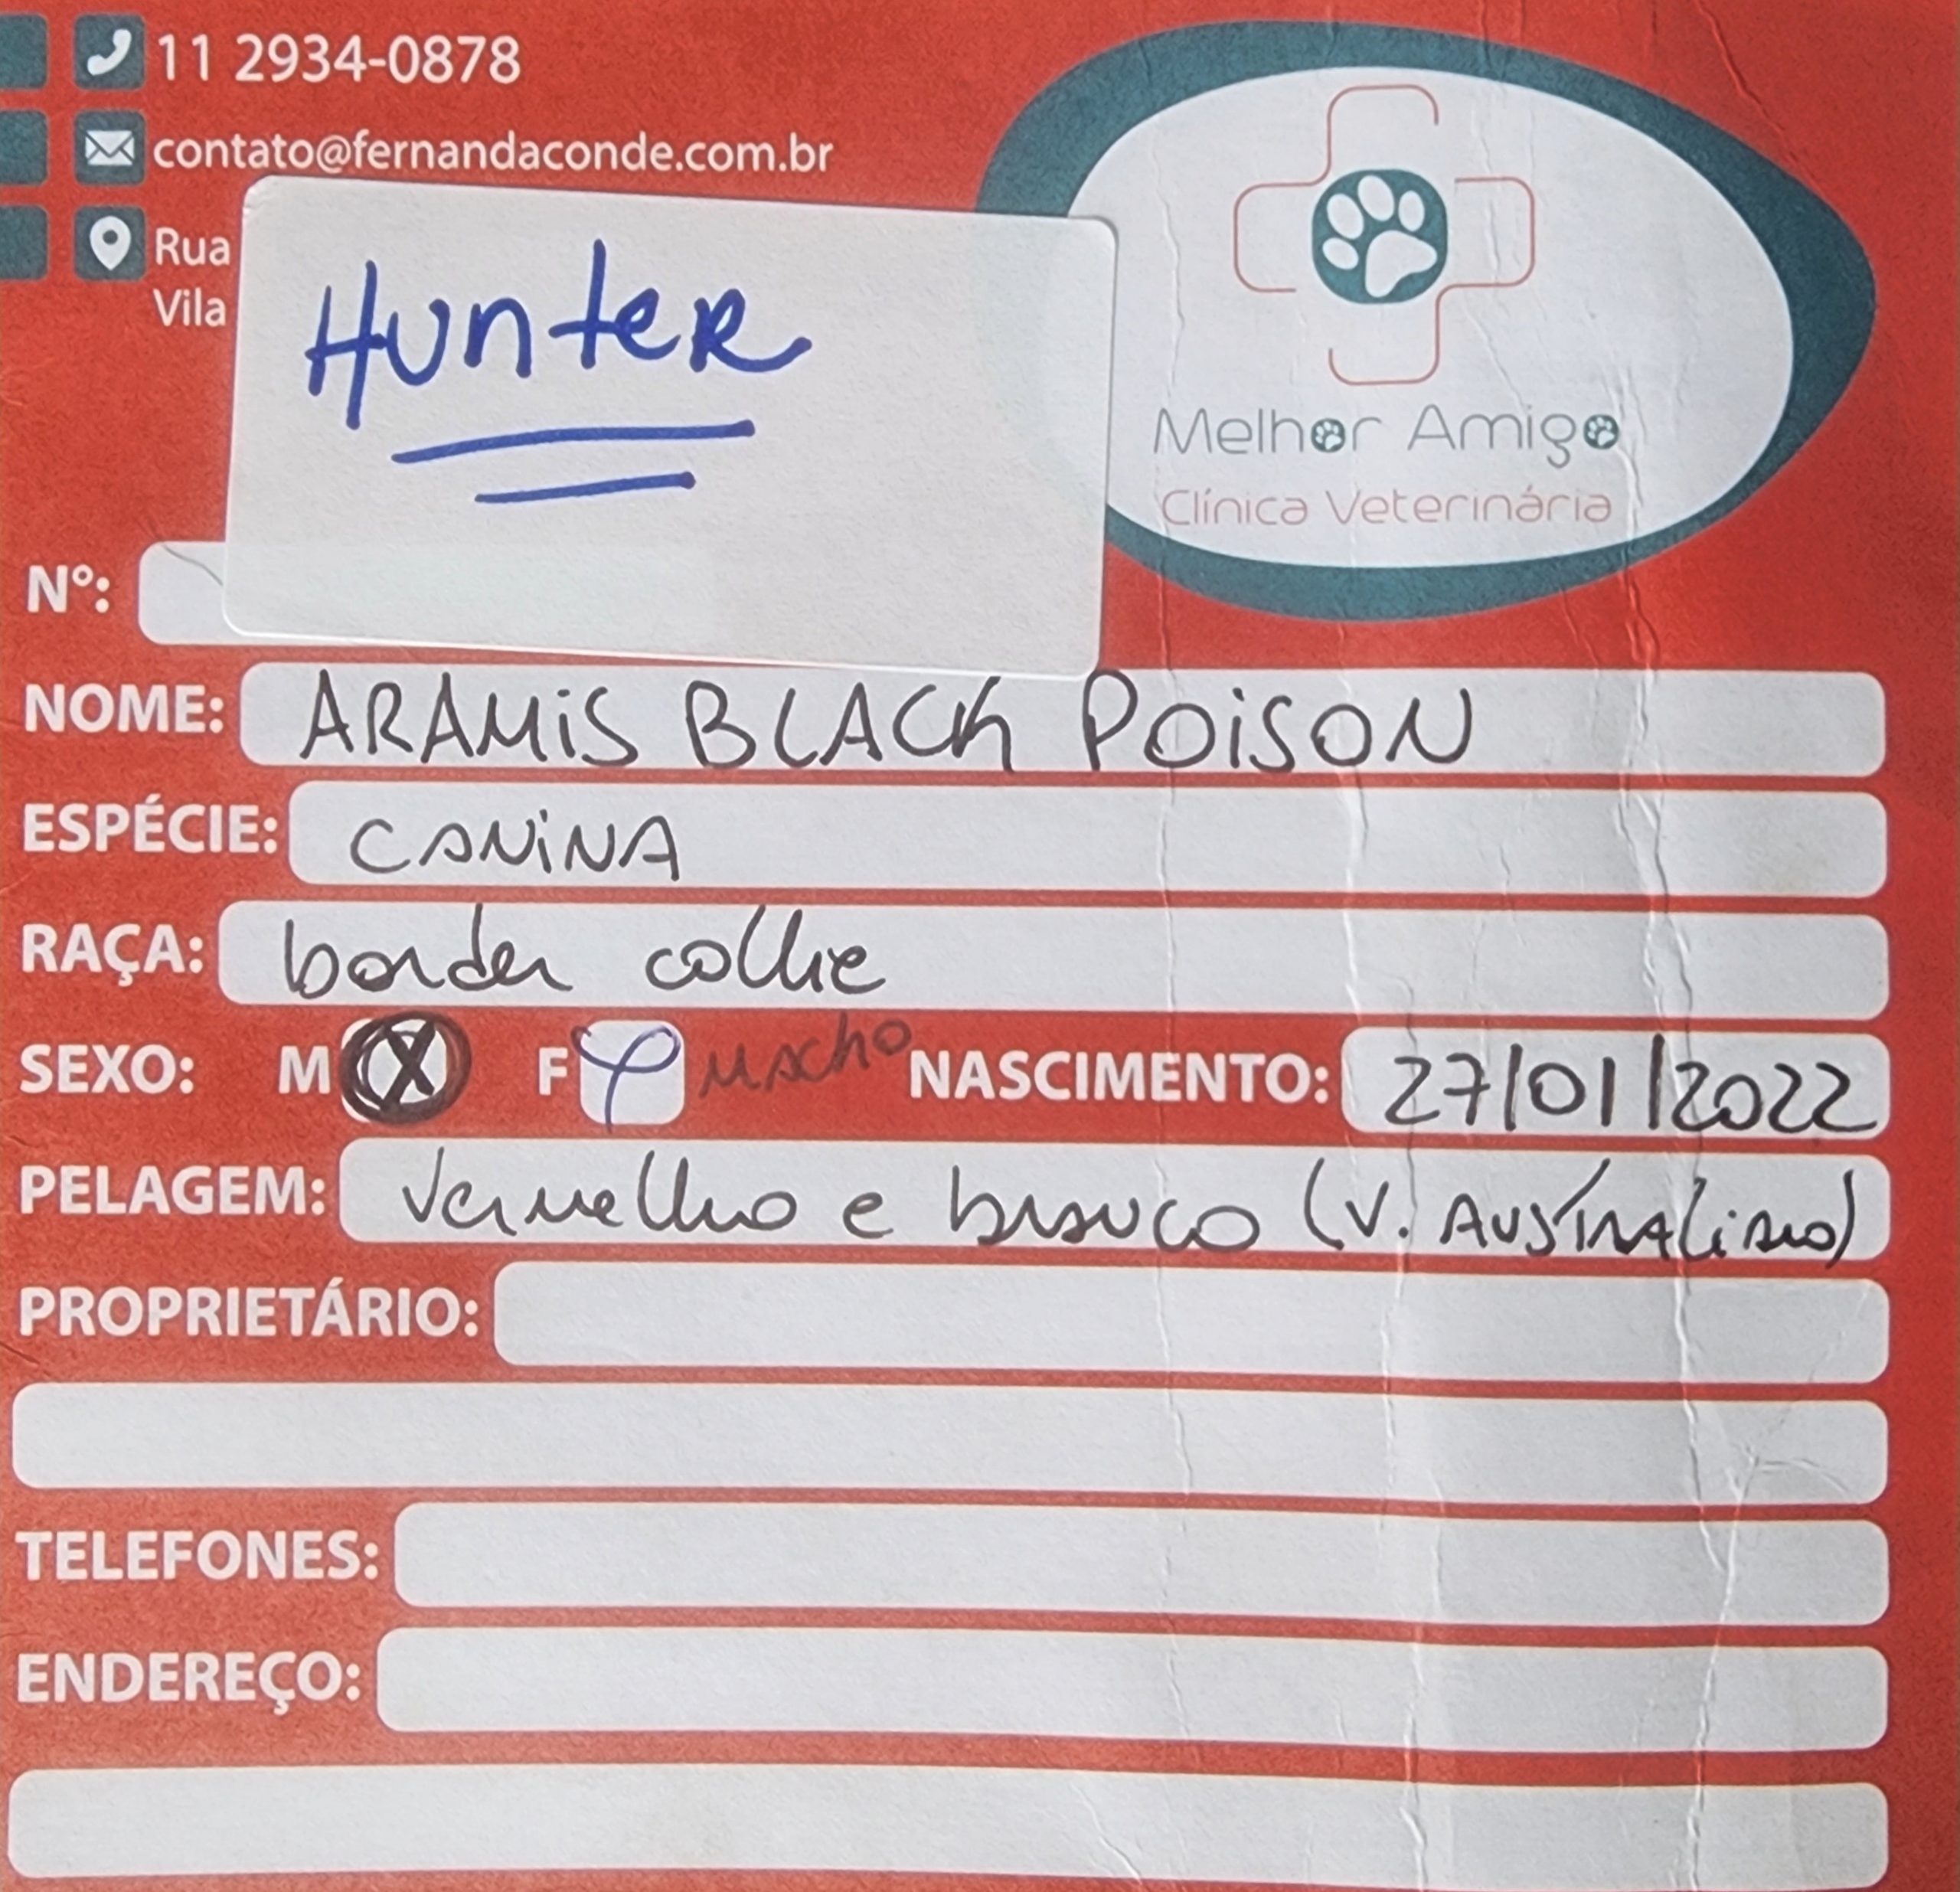 11 2934-0878
contato@fernandaconde.com.br
Rua
Vila
Hunter
Melhor Amigo
Clínica Veterinária
Nº:
NOME: ARAMIS BLACK POISON
ESPÉCIE: CANINA
RAÇA: border collie
SEXO: M X F macho NASCIMENTO: 27/01/2022
PELAGEM: Vermelho e branco (V. AUSTRALIANO)
PROPRIETÁRIO:
TELEFONES:
ENDEREÇO: